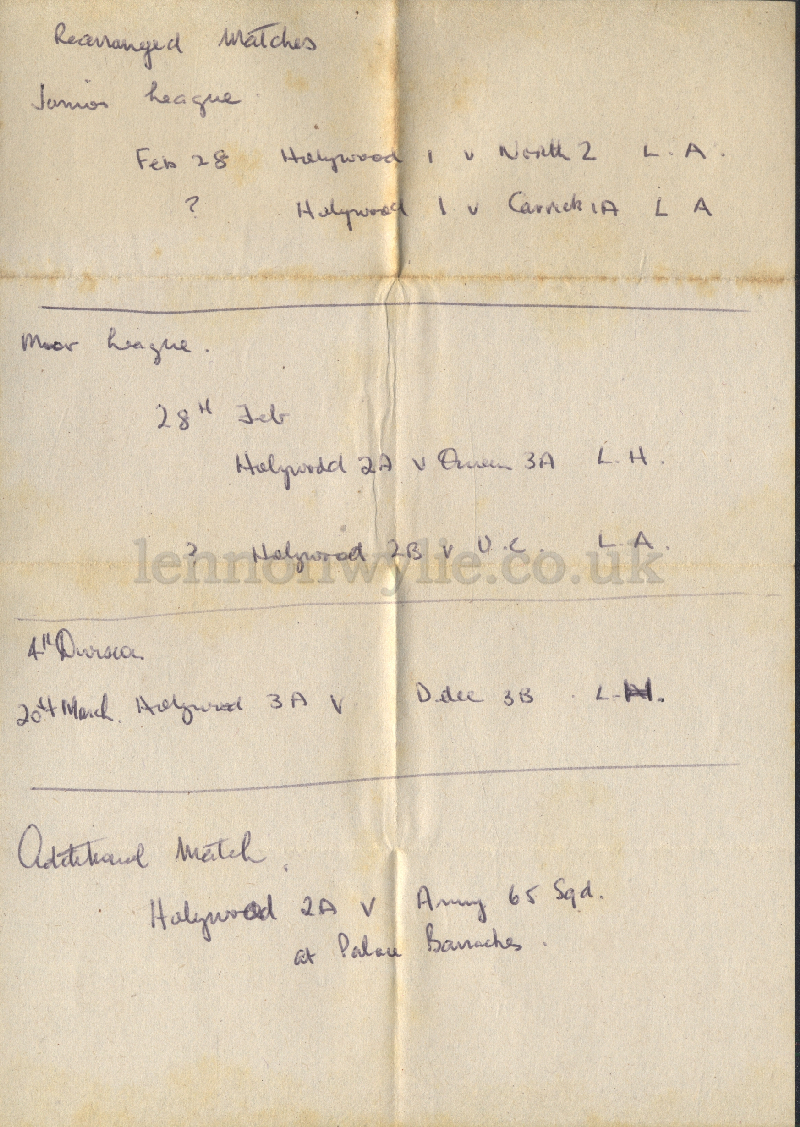 Rearranged Matches
Junior League
Feb 28 Holywood 1 v North 2 L. A.
? Holywood 1 v Carrick 1A L A
League.
28TH Feb
Holywood 2A v Queens 3A L. H.
? Holywood 2B v U.C. L. A.
lennonwylie.co.uk
4TH Division
20TH March. Holywood 3A V 3B. L.
Additional Match.
Holywood 2A V Army 65 Sqd.
at Palace Barraches.